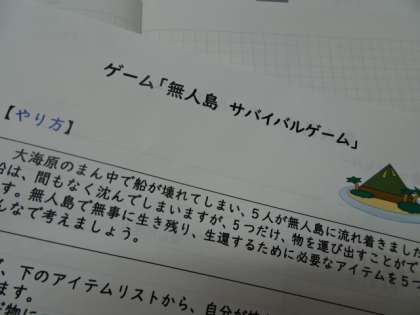 ゲーム「無人島 サバイバルゲーム」
【やり方】
大海原のまん中で船が壊れてしまい、5人が無人島に流れ着きました
船は、間もなく沈んでしまいますが、5つだけ、物を運び出すことがで
す。無人島で無事に生き残り、生還するために必要なアイテムを5つ
んなで考えましょう。
下のアイテムリストから、自分が
ます。